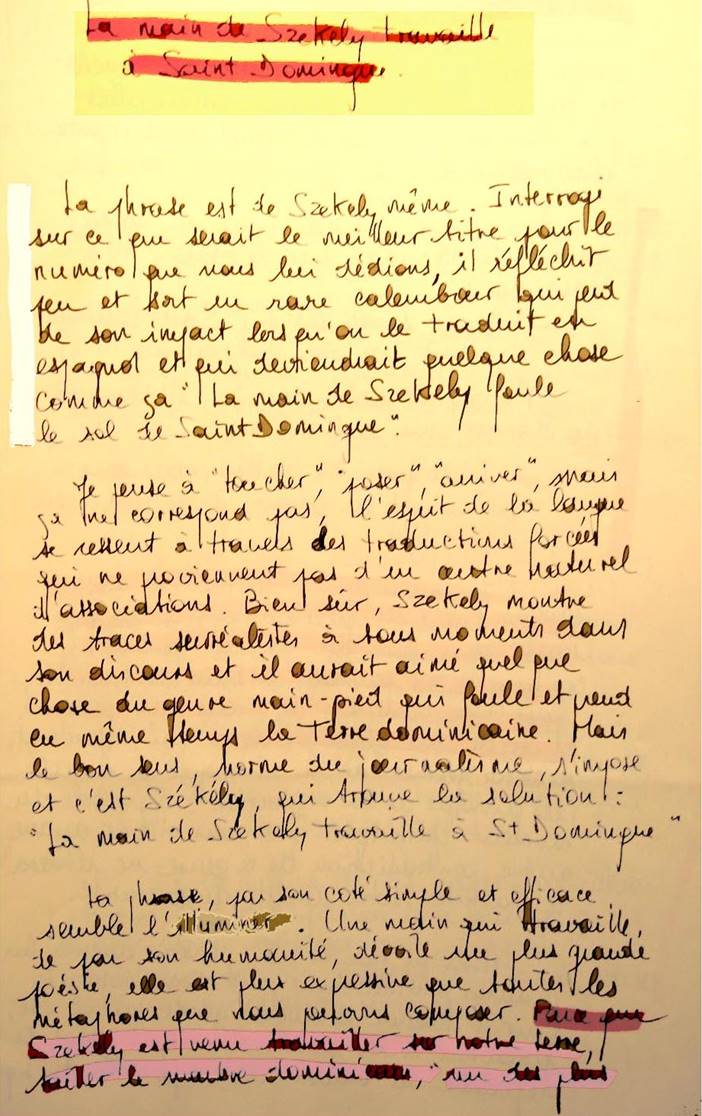 La main de Szekely travaille
à Saint Domingue.
La phrase est de Szekely même. Interrogé
sur ce que serait le meilleur titre pour le
numéro que nous lui dédions, il réfléchit
peu et sort un rare calembour qui perd
de son impact lorsqu'on le traduit en
espagnol et qui deviendrait quelque chose
comme ça "La main de Szekely foule
le sol de Saint Domingue".
Je pense à "toucher", "poser", "arriver", mais
ça ne correspond pas, l'esprit de la langue
se ressent à travers des traductions forcées
qui ne proviennent pas d'un centre naturel
d'associations. Bien sûr, Szekely montre
des traces surréalistes à tous moments dans
son discours et il aurait aimé quelque
chose du genre main-pied qui foule et peint
en même temps la Terre dominicaine. Mais
le bon sens, norme du journalisme, s'impose
et c'est Székély, qui trouve la solution :
"La main de Szekely travaille à St Domingue"
La phrase, par son coté simple et efficace
semble l'illuminer. Une main qui travaille,
de par son humanité, dévoile une plus grande
poésie, elle est plus expressive que toutes les
métaphores que nous pouvons composer. Parce que
Szekely est venu travailler sur notre terre,
tailler le marbre dominicain, "un des plus